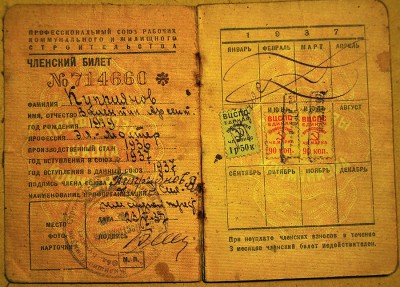 ПРОФЕССИОНАЛЬНЫЙ СОЮЗ РАБОЧИХ
КОММУНАЛЬНОГО И ЖИЛИЩНОГО
СТРОИТЕЛЬСТВА
ЧЛЕНСКИЙ БИЛЕТ
№714660 *
ФАМИЛИЯ Куприянов
ИМЯ, ОТЧЕСТВО Валентин
ГОД РОЖДЕНИЯ
ПРОФЕССИЯ Эл-Монтер
ПРОИЗВОДСТВЕННЫЙ СТАЖ 1936
ГОД ВСТУПЛЕНИЯ В СОЮЗ 1937
ГОД ВСТУПЛЕНИЯ В ДАННЫЙ СОЮЗ 1937
ПОДПИСЬ ЧЛЕНА СОЮЗА Куприянов
НАИМЕНОВАНИЕ ПРОФОРГАНИЗАЦИИ
МЕСТО
ДАТА
ФОТО-
ПОДПИСЬ
КАРТОЧКИ
М. П.
1937
ЯНВАРЬ ФЕВРАЛЬ МАРТ АПРЕЛЬ
МАЙ ИЮНЬ ИЮЛЬ АВГУСТ
ВЦСПС
ЧЛЕНСК
1р50к
ВЦСПС
ЧЛЕНСК
90 коп.
ВЦСПС
ЧЛЕНСК
90 коп.
СЕНТЯБРЬ ОКТЯБРЬ НОЯБРЬ ДЕКАБРЬ
При неуплате членских взносов в течение
3 месяцев членский билет недействителен.